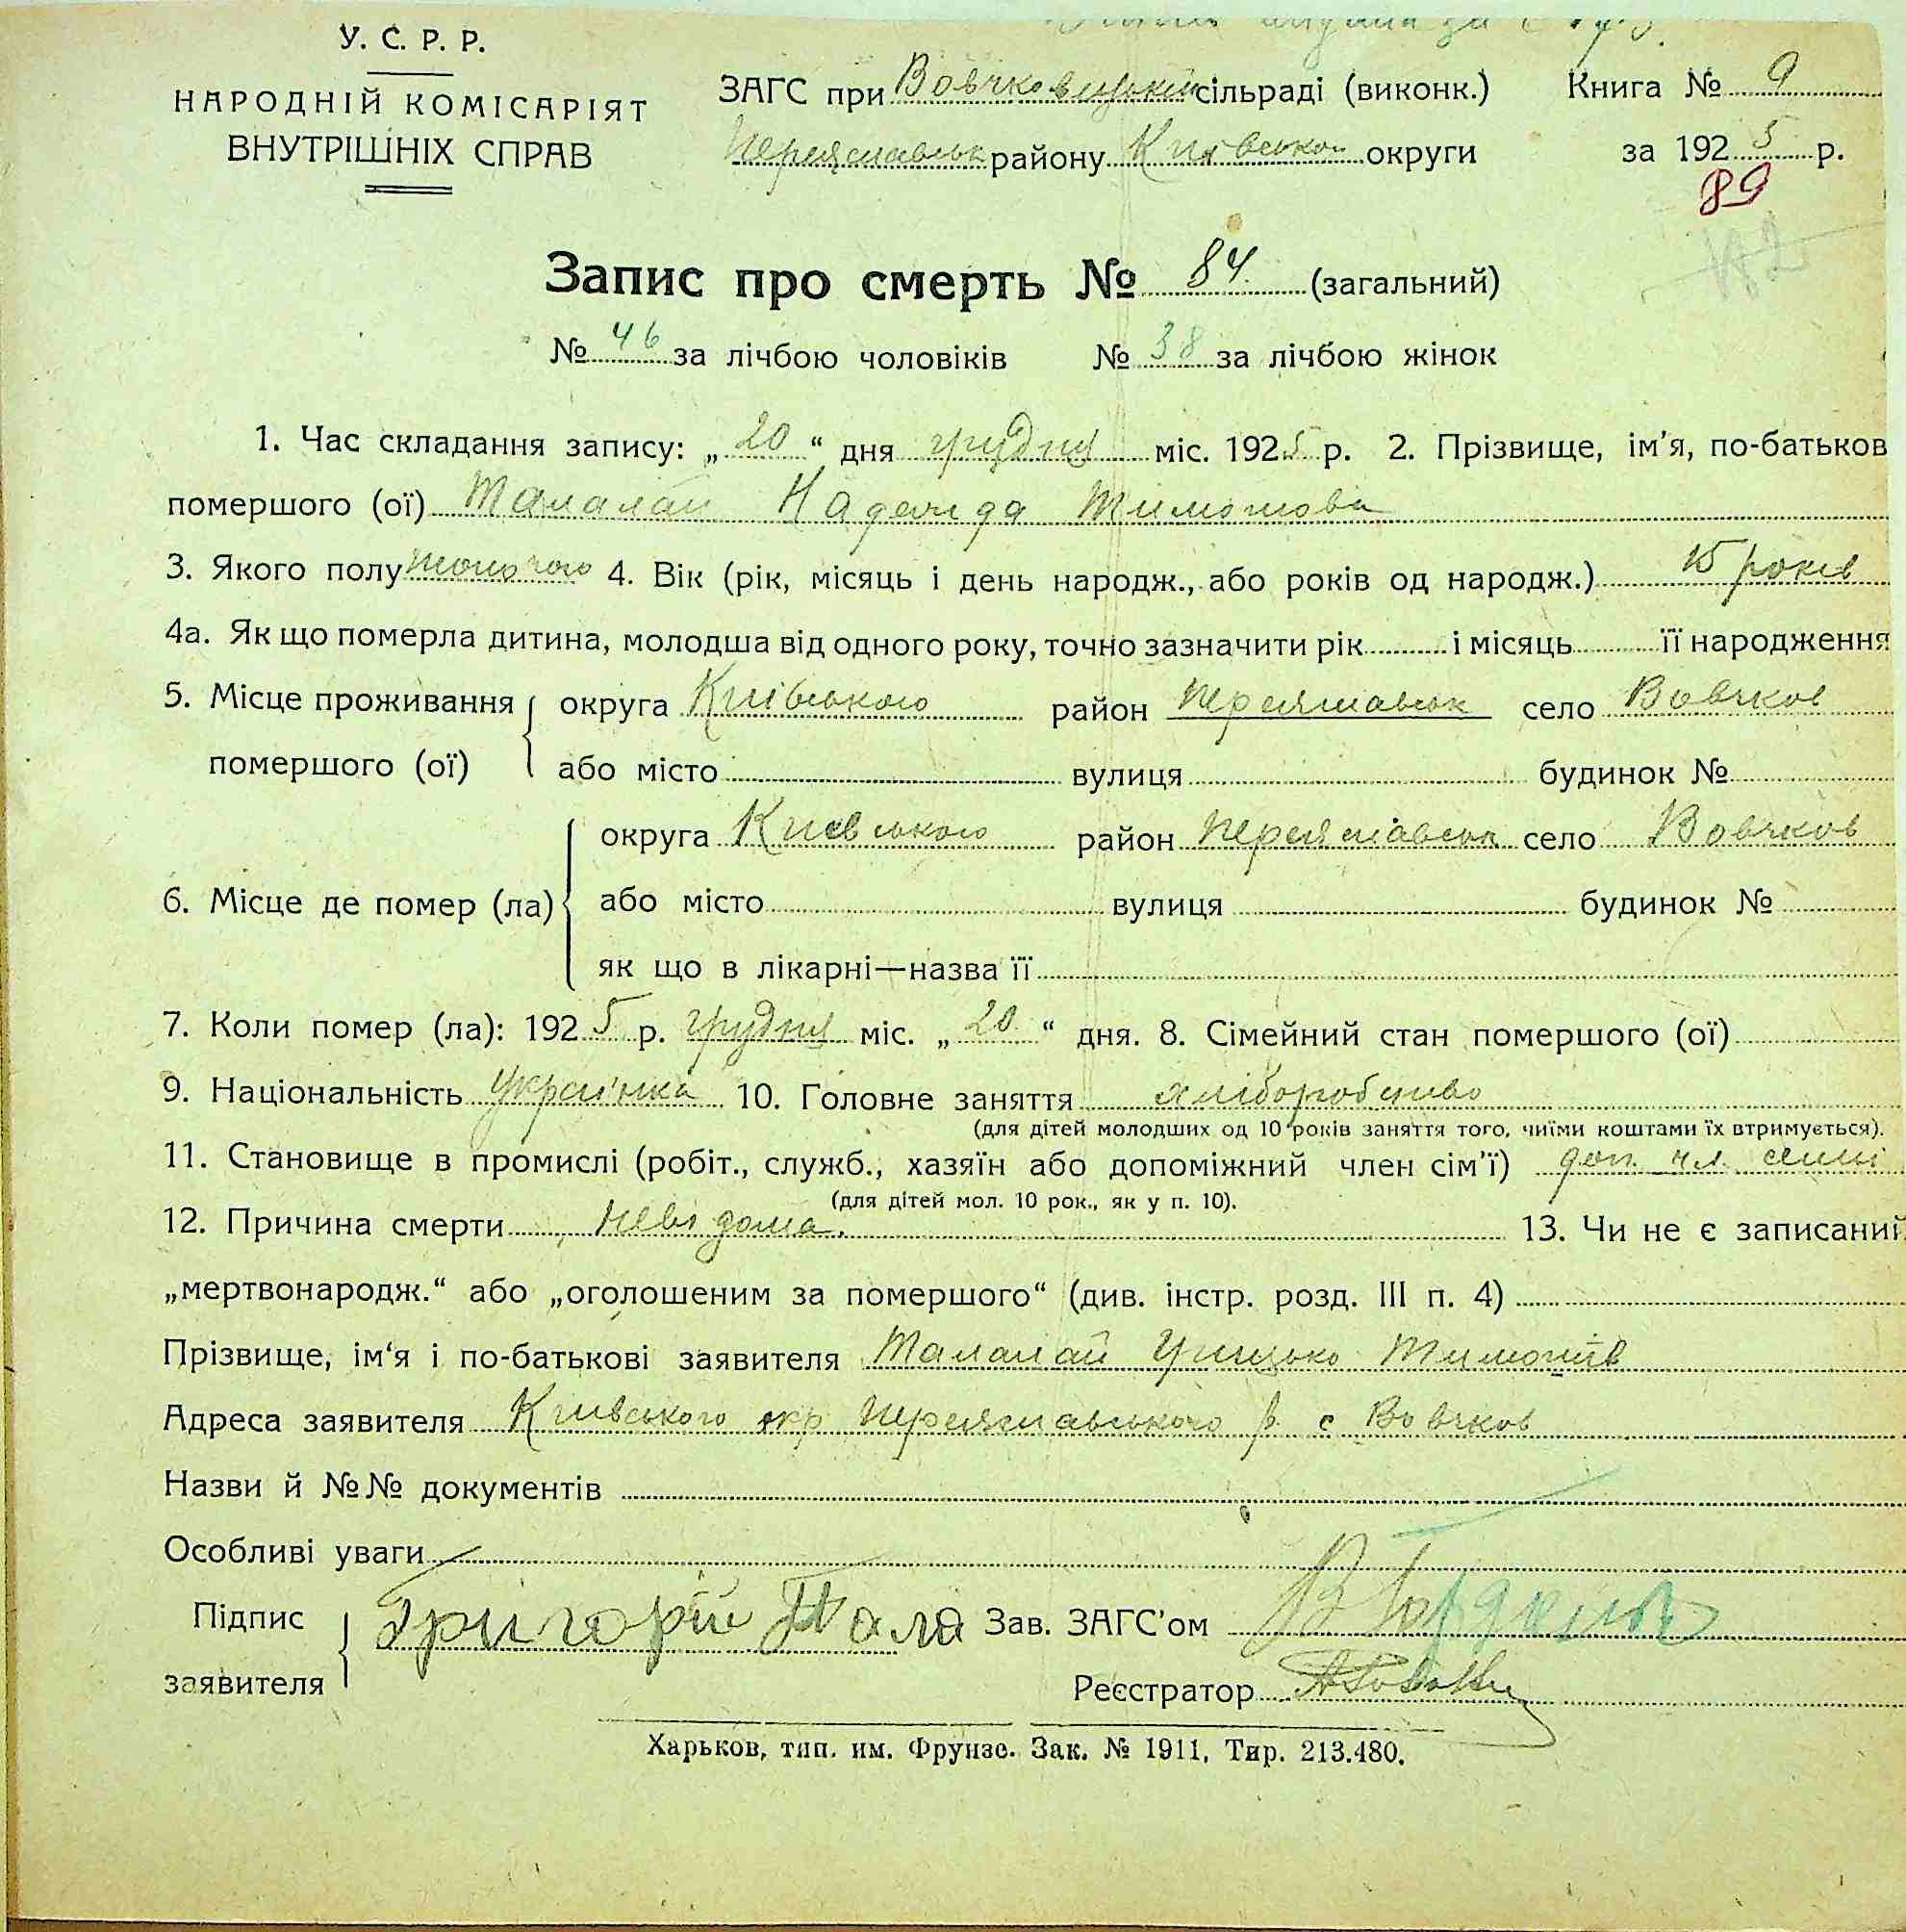 У. С. Р. Р.
НАРОДНІЙ КОМІСАРІЯТ
ВНУТРІШНІХ СПРАВ
ЗАГС при Вовчковицькій сільраді (виконк.)
Переяславськ району Київської округи
Книга № 9
за 1925 р.
89
Запис про смерть № 84. (загальний)
№ 46 за лічбою чоловіків № 38 за лічбою жінок
1. Час складання запису: „20“ дня грудня міс. 1925 р. 2. Прізвище, ім'я, по-батьков
помершого (ої) Талалай Надежда Тимошова
3. Якого полу жіночого 4. Вік (рік, місяць і день народж., або років од народж.) 15 років
4а. Як що померла дитина, молодша від одного року, точно зазначити рік і місяць її народження
5. Місце проживання помершого (ої) округа Київського район Переяславськ село Вовчков
або місто вулиця будинок №
6. Місце де помер (ла) округа Киевського район Переяславськ село Вовчков
або місто вулиця будинок №
як що в лікарні—назва її
7. Коли помер (ла): 1925 р. грудня міс. „20“ дня. 8. Сімейний стан помершого (ої)
9. Національність Українка 10. Головне заняття хліборобство
(для дітей молодших од 10 років заняття того, чиїми коштами їх втримується).
11. Становище в промислі (робіт., служб., хазяїн або допоміжний член сім'ї) доп. чл. семї
(для дітей мол. 10 рок., як у п. 10).
12. Причина смерти невідома. 13. Чи не є записаний
„мертвонародж.“ або „оголошеним за помершого“ (див. інстр. розд. III п. 4)
Прізвище, ім'я і по-батькові заявителя Талалай Грицько Тимошів
Адреса заявителя Киівського окр Переяславського р. с Вовчков
Назви й №№ документів
Особливі уваги
Підпис заявителя Григорій Тала Зав. ЗАГС'ом
Реєстратор
Харьков, тип. им. Фрунзе. Зак. № 1911. Тир. 213.480.